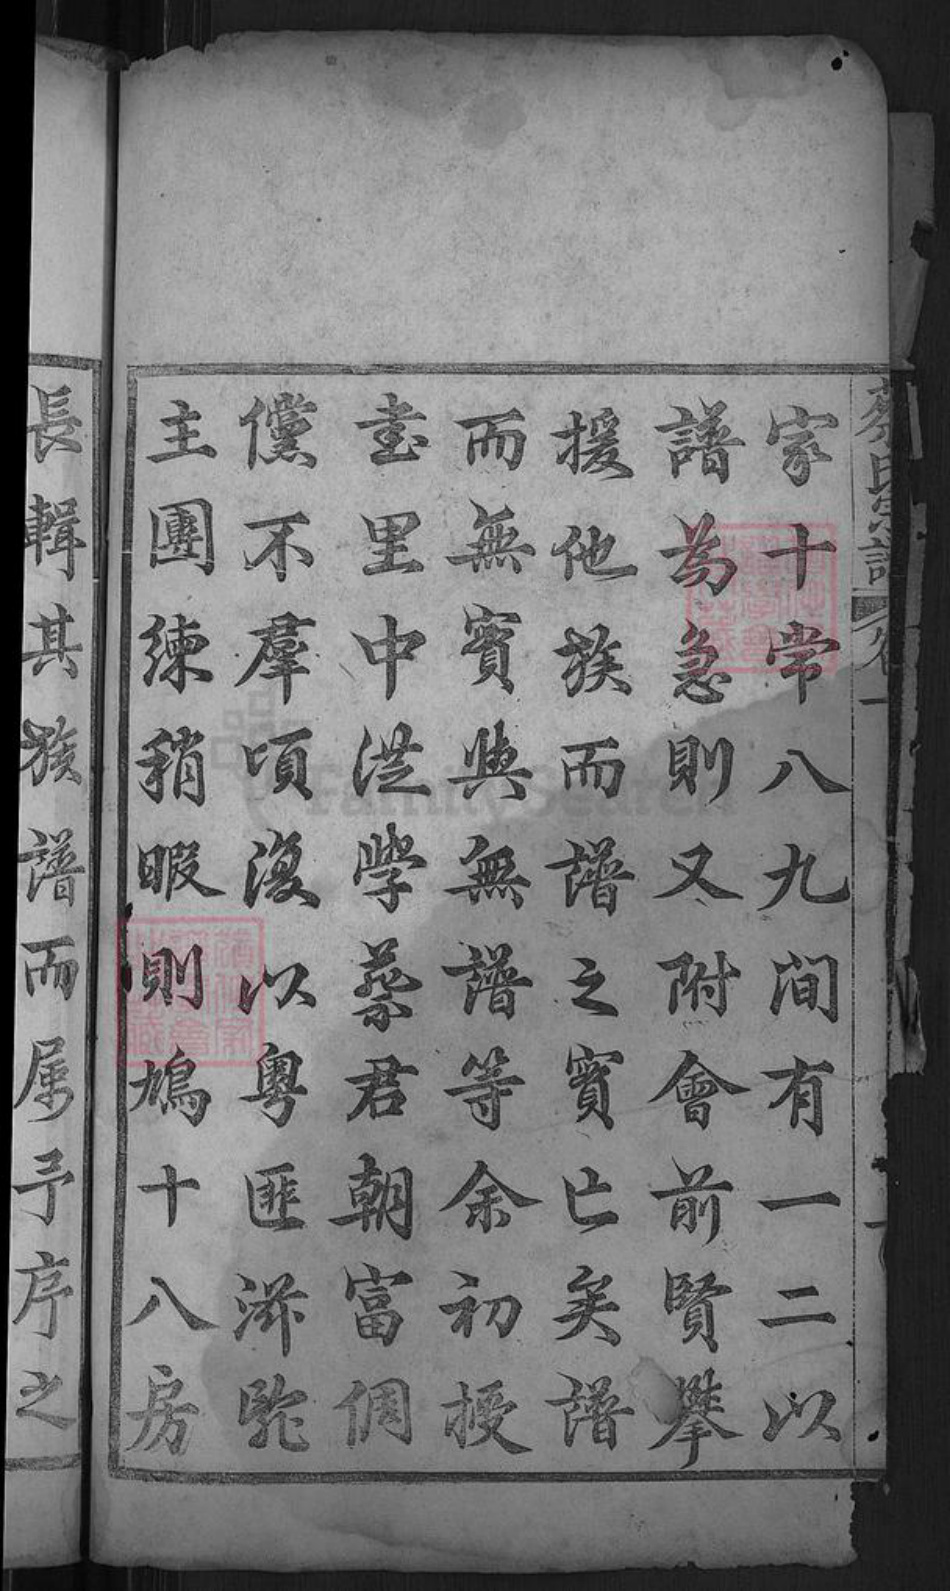 蔡氏宗譜 卷一
家十常八九間有一二以
譜為急則又附會前賢攀
援他族而譜之實亡矣譜
而無實與無譜等余初授
書里中洪學蔡君朝富倜
儻不羣頃復以粵匪滋
主團練稍暇則鳩十八房
長輯其族譜而屬予序之